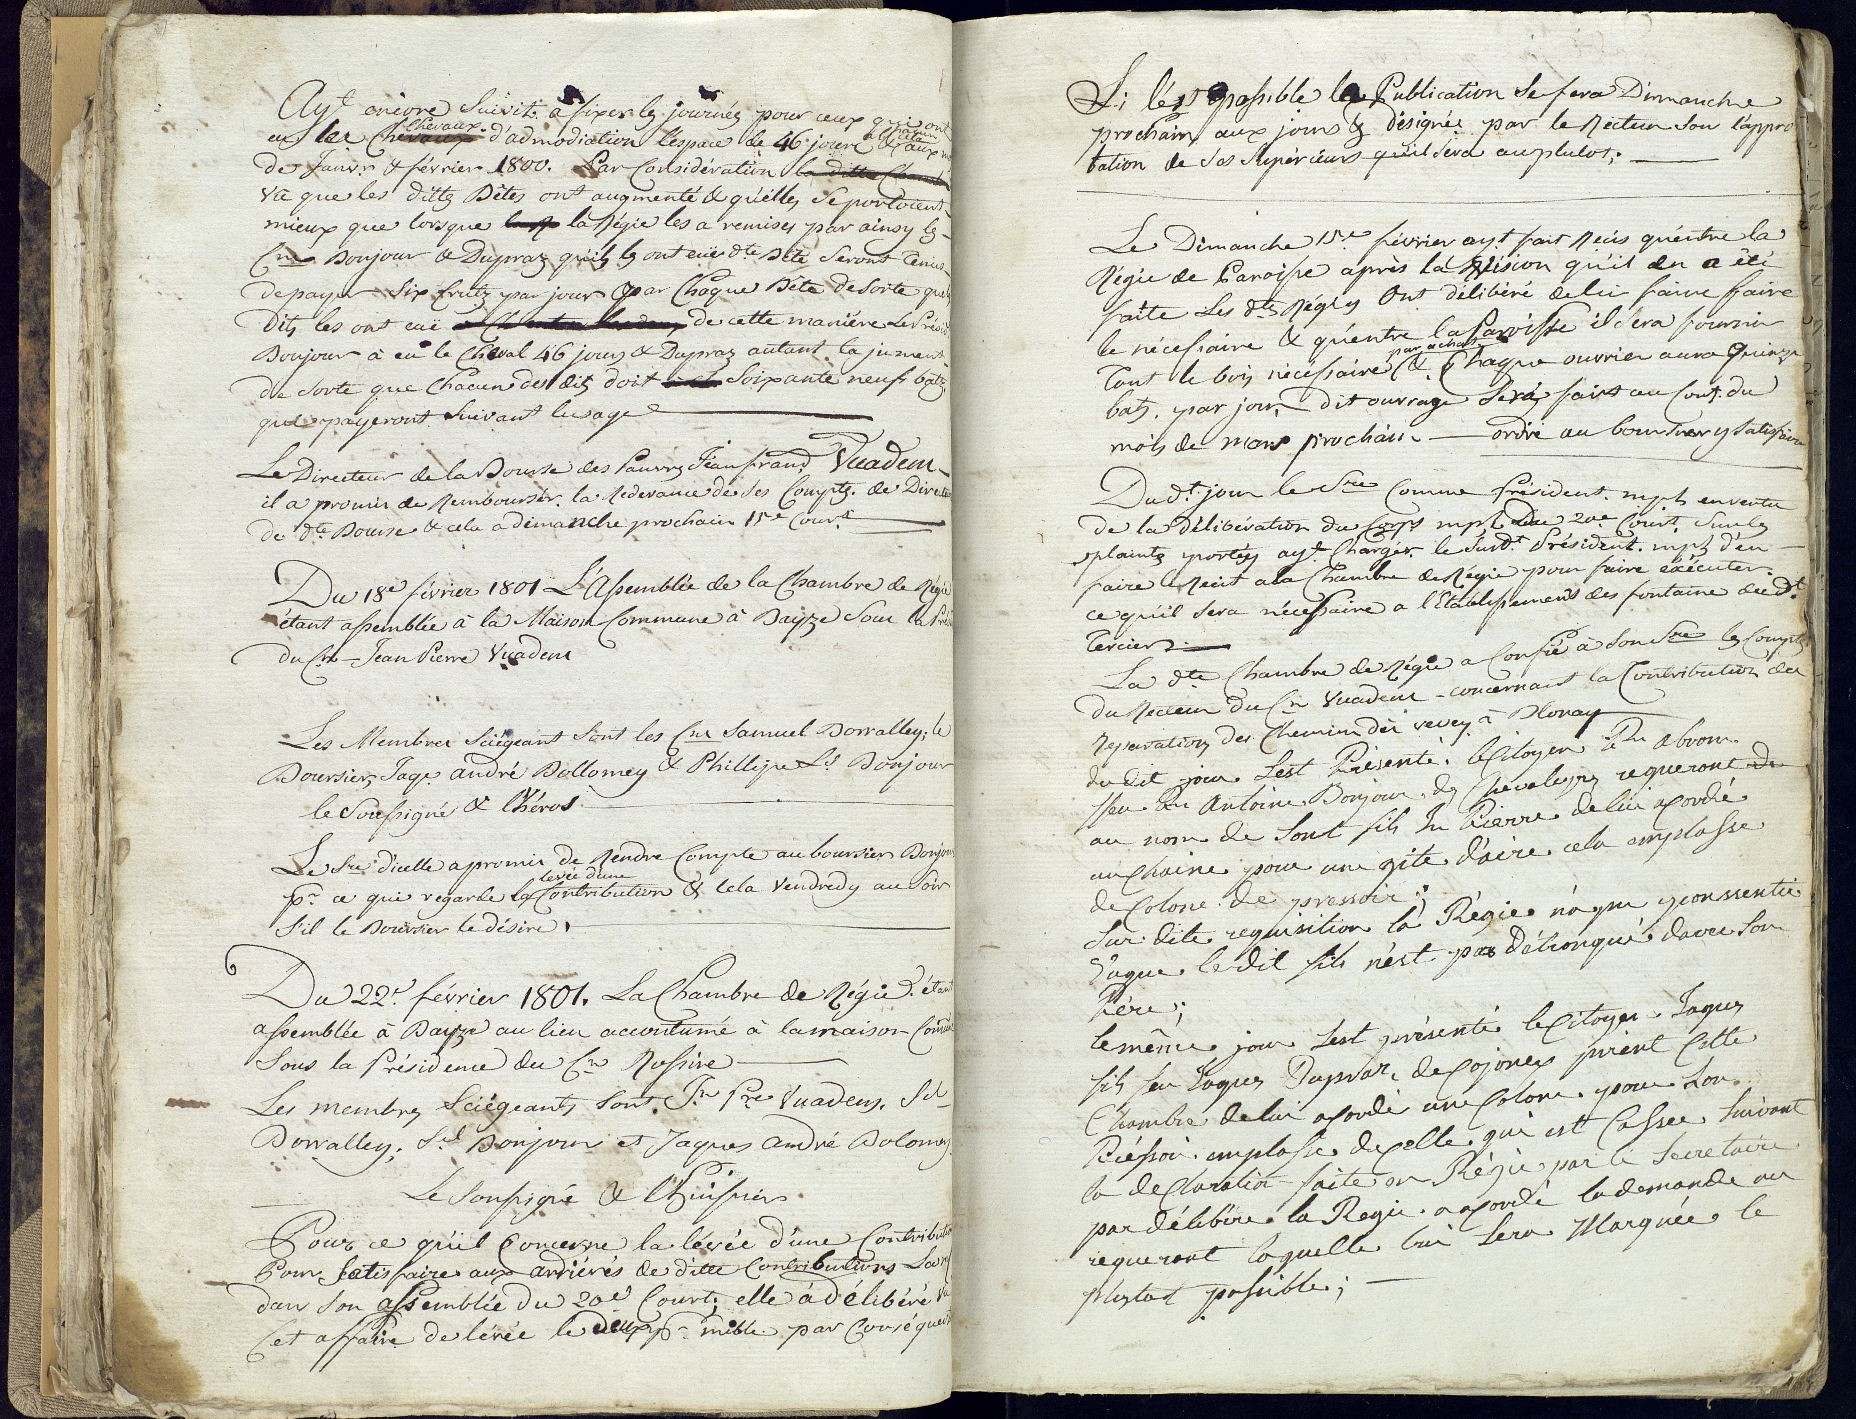 Ayt encore Suivit à fixer les journées pour ceux qui ont
eu les chevaux d'admodiation l'espace de 46 jours
de Janvr. & février 1800. Par Considération
Vû que les dittes Bêtes ont augmenté & quelles Se portoient
mieux que lorsque la Régie les a remises par ainsy les
Cns Bonjour & Dupraz qu'ils les ont euë dte Bête Seront Tenus
de payer Six Crutz par jour par Chaque Bête de Sorte que
dits les ont euë de cette maniére Le Présid
Bonjour à eu le Cheval 46 jours & Dupraz autant la jument
de Sorte que Chacun des dits doit Soixante neuf batz
que payeront Suivant lusage
Le Directeur de la Bourse des Pauvres Jean frand Vuadens
il a promis de Rembourser la Rederance de Ses Comptes de Direct
de dte Bourse & cela a dimanche prochain 15e Court
Du 18e février 1801 L'Assemblée de la Chambre de Régie
étant assemblée à la Maison Commune à Bayze Sous la Prés
du Cn Jean Pierre Vuadens
Les Membres Sciégeant Sont les Cns Samuel Dorralley, le
Boursier, Jaqs andré Dollomey & Phillipe Ls Bonjour
le Soussigné & l'héros
Le Sre d'icelle a promis de Rendre Compte au boursier Bonjou
pr ce qui regarde la levée d'une Contribution & Cela Vendredy au Soir
S'il le Boursier le désire.
Du 22e février 1801. La Chambre de Régie étant
assemblée à Bayze au lieu accoutumé à la maison Comune
Sous la Présidence du Cn Rossire
Les membres Sciégeants Sont Jn Pre Vuadens, Sl
Dorralley, Sl Bonjour et Jaques andré Dolomey
Le Soussigné & l'huissier
Pour ce qu'il Concerne la lévée d'une Contributi
Pour Satisfaire aux arriérés de ditte Contributions La
dans Son assemblée du 20e Court; elle à délibéré
Cet affaire de lévée le deux pr mille par Conséquent
Si lést possible les Publication Se fera Dimanche
prochain aux jours désignés par le Recteur Sou l'appro
bation de Ses Supérieurs qu'il Sera au plutot.
Le Dimanche 15e février ayt fait Récis quentre la
Régie de Paroisse après la Vision qu'il en a été
faite Les dts Régies Ont délibéré de lui faire ffaire
le nécessaire & quentre la Paroisse il Sera fournir
Tout le bois nécessaire par achat & Chaque ouvrier aura Quinze
batz par jour dit ouvrage Sera faits au Cont du
mois de mars prochain. ordre au boursier y Satisfaire
Du dt jour le Sre Comme Président mpl en vertu
de la délibération du Corps mpl Du 20e Court Sur les
plaintes portées ayt Charger le Susdt Président mpl d'en
faire Recit a la Chambre de Régie pour faire éxécuter
ce qu'il Sera nécessaire a l'Etablissement des fontaine de dt
Tercier.
La dte Chambre de Régie a Confié à Son Sre les Comptes
du Recteur du Cn Vuadens concernant la Contribution des
Reparations des Chemins dès vevey à Blonay
du dit jour Sest Présenté le Citoyen Jn Abram
ffeu Jn Antoine Bonjour des Chevaleyres requeront de
au nom de Sont fils Jn Pierre de lui acordé
un Chaine pour une gite d'aire cela emplasse
de Colone de pressoir;
Sur dite requisition la Régie n'a peu y conssentir
Vuque le dit fils n'est pas détronqué davec Son
Pére;
le même jour Sest présenté le Citoyen Jaques
fils feu Jaques Dupraz de Cojonex prient Cette
Chambre de lui acordé une Colone pour Son
Préssoir emplasse de Celle qui est Cassée Suivant
la declaration faite en Régie par le Secretaire
par délibére la Regie a acordé la demande au
requerant laquelle lui Sera Marquée le
plustot possible;